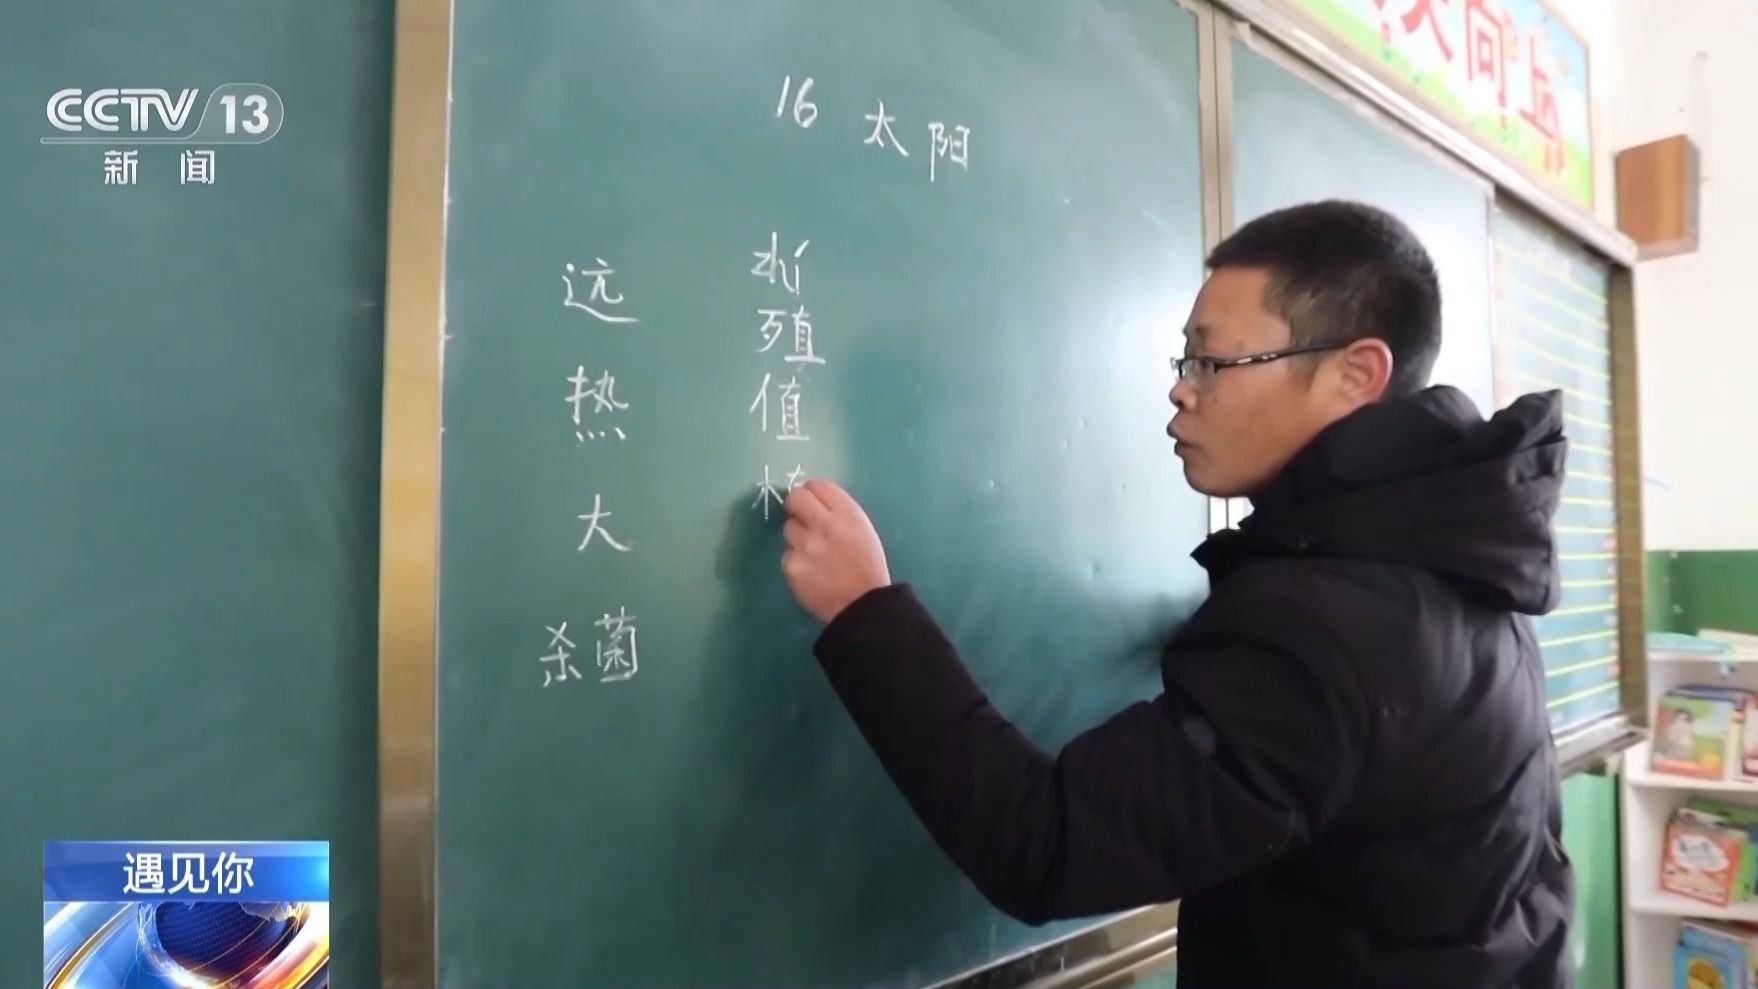 CCTV 13
新闻
天向上
16 太阳
远
热
大
杀菌
殖
值
遇见你